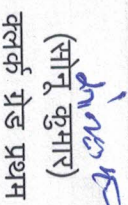 (सोनू कुमार)
क्लर्क ग्रेड प्रथम